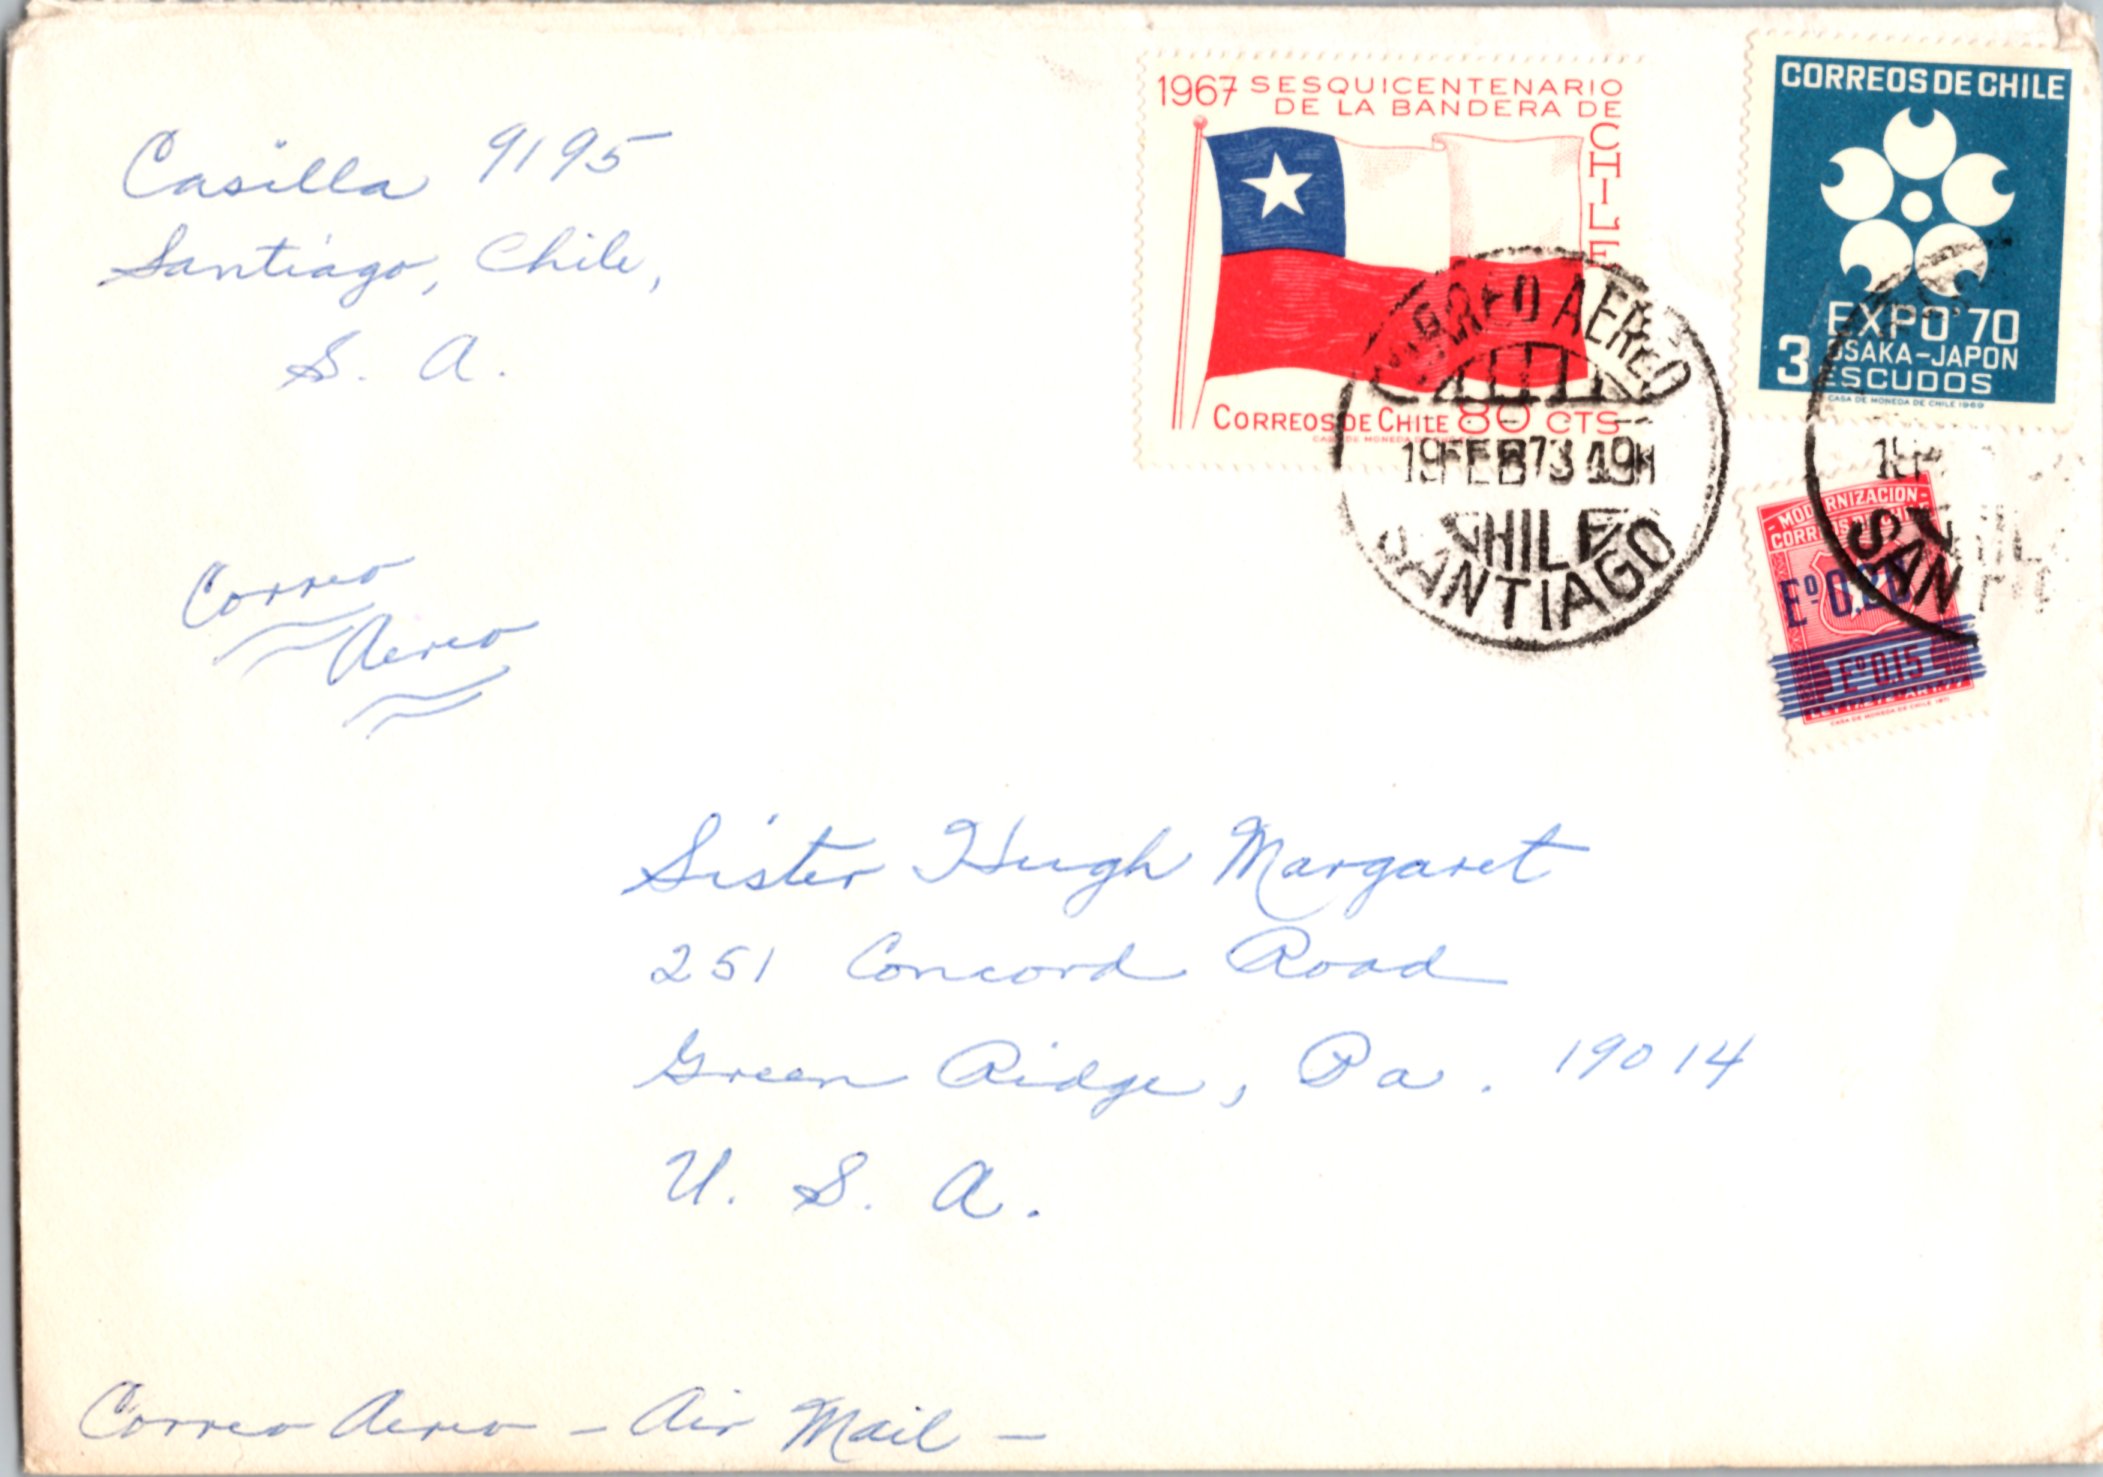 Casilla 9195
Santiago, Chile,
S. A.
1967 SESQUICENTENARIO
DE LA BANDERA DE
CHILE
CORREOS DE CHILE 80 CTS
CORREOS DE CHILE
EXPO'70
OSAKA-JAPON
3 ESCUDOS
CASA DE MONEDA DE CHILE 1969
CORREO AEREO
19 FEB 73 19H
CHILE
SANTIAGO
- MODERNIZACION -
CORREOS DE CHILE
Eº 0.20
Eº 0.15
CASA DE MONEDA DE CHILE
SAN
Correo
Aereo
Sister Hugh Margaret
251 Concord Road
Green Ridge, Pa. 19014
U. S. A.
Correo Aereo - Air Mail -